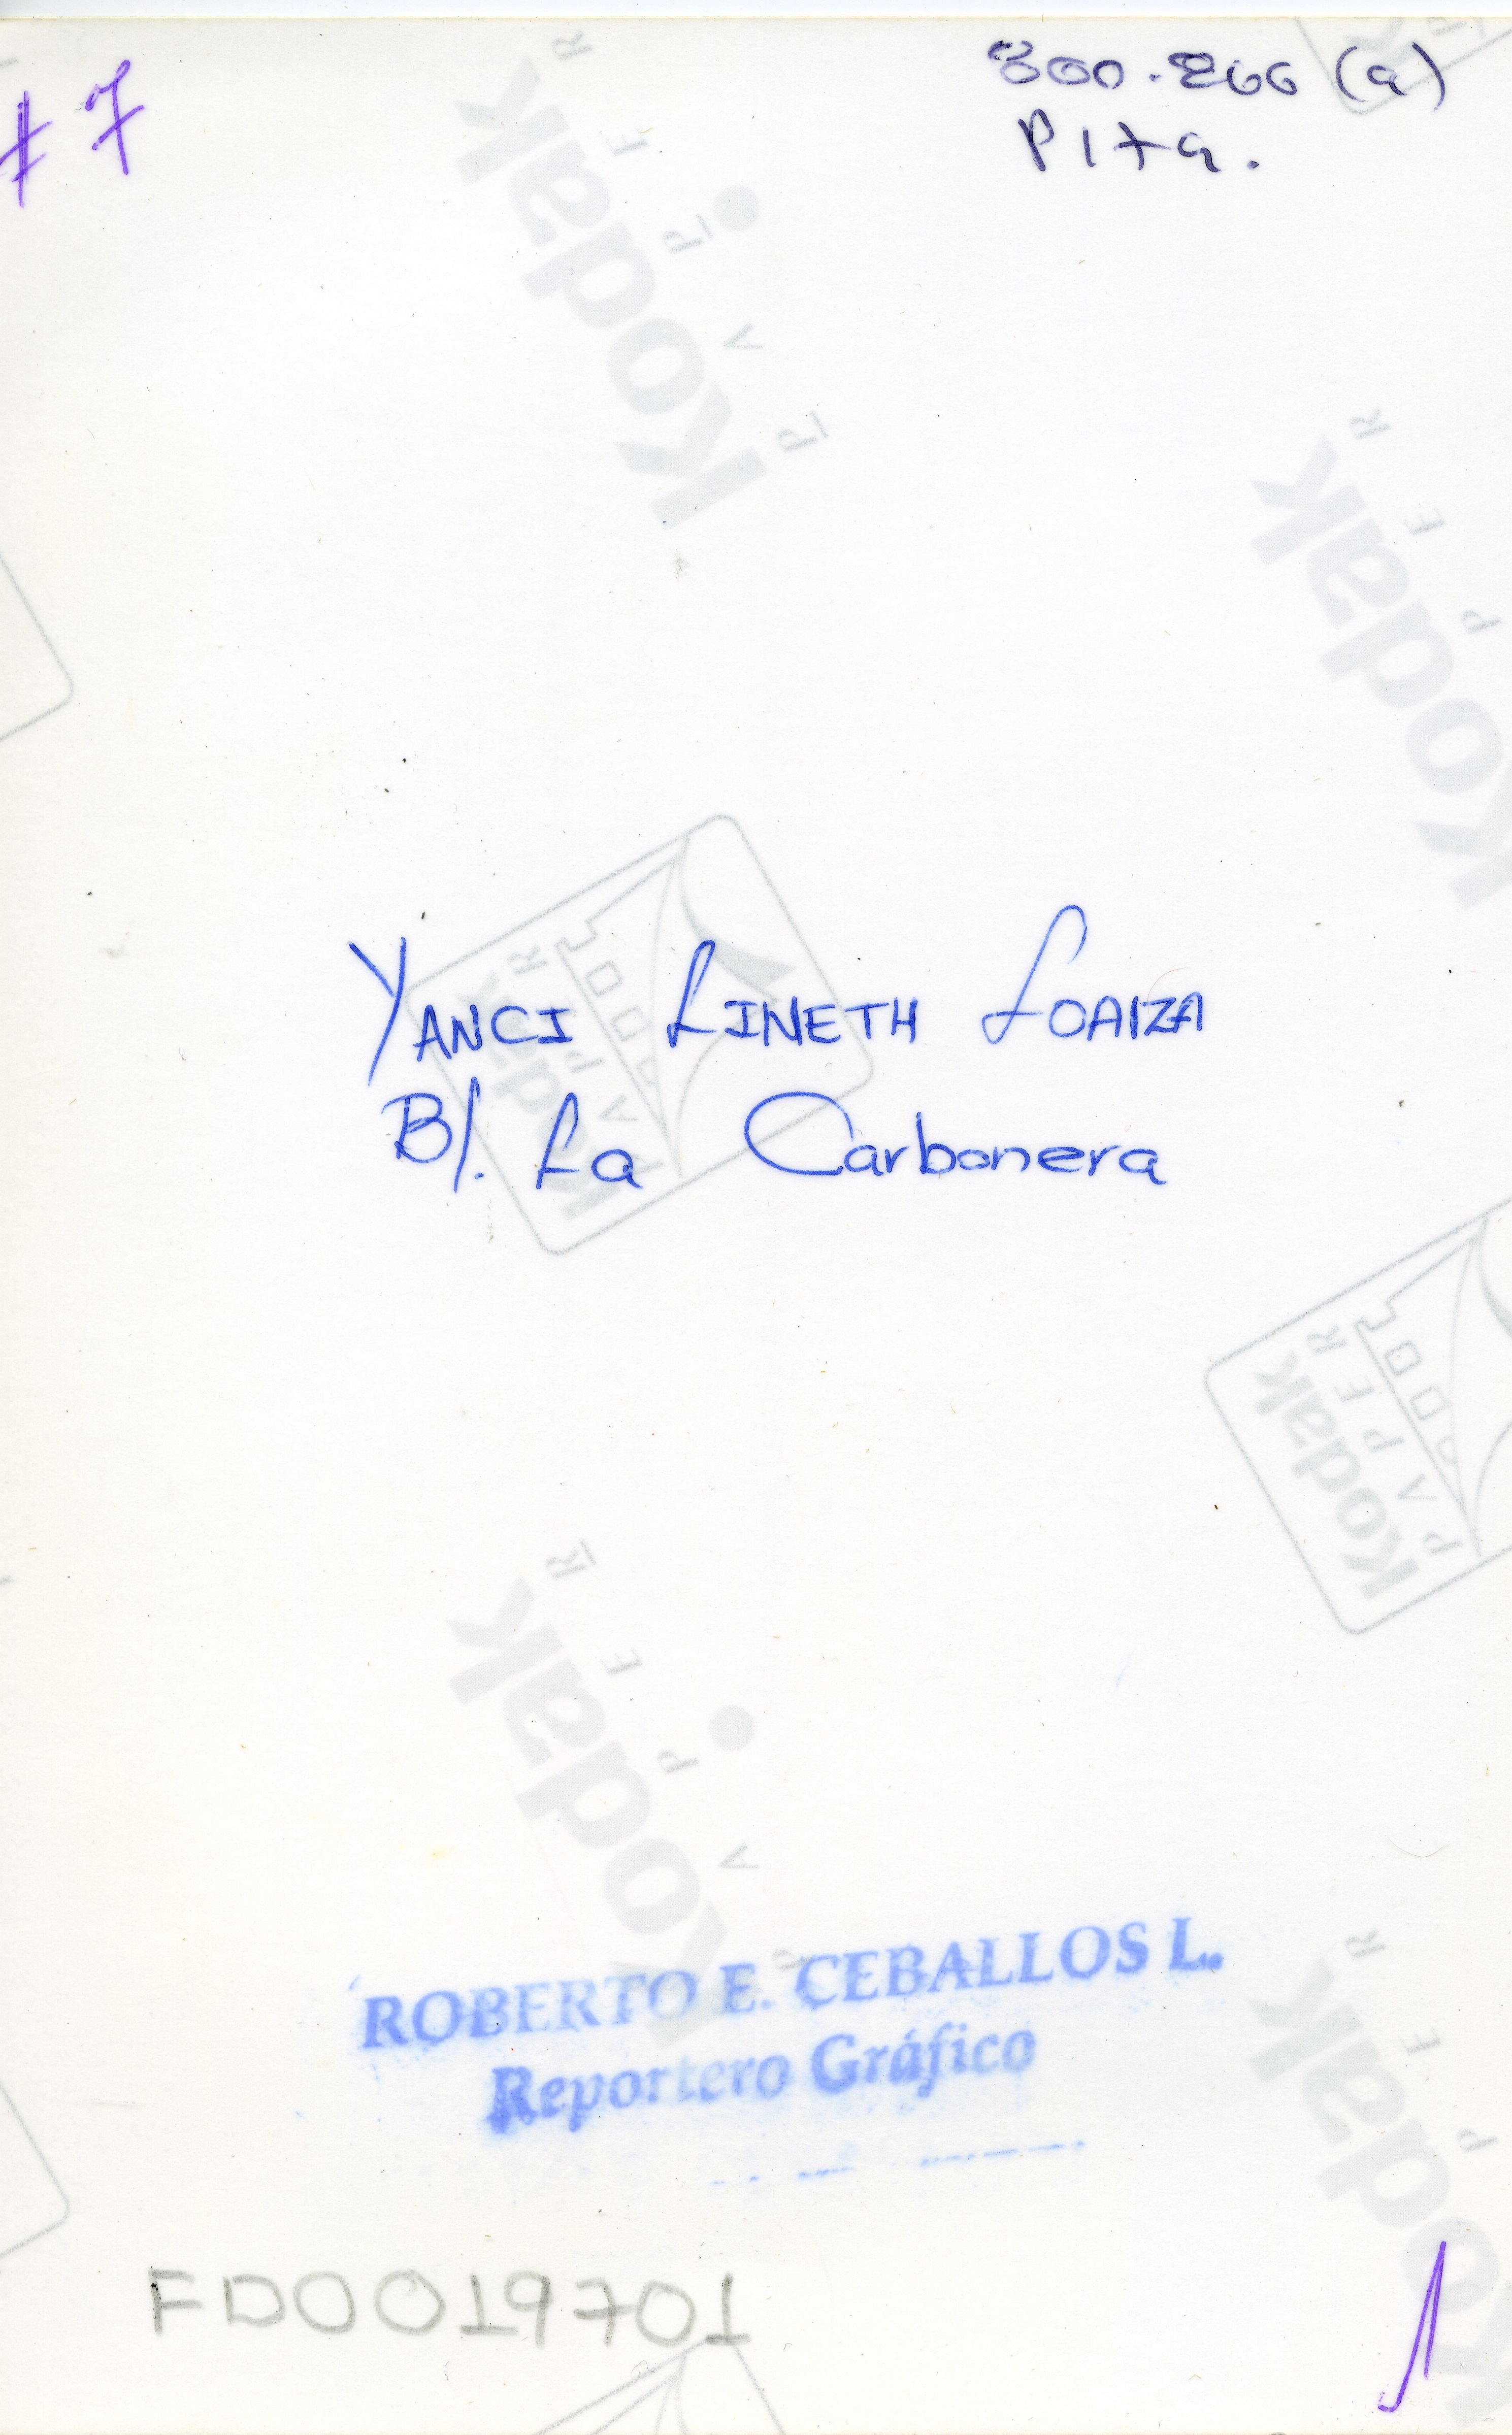 # 7
300.266 (a)
Pita.
YANCI LINETH LOAIZA
B/. La Carbonera
ROBERTO E. CEBALLOS L.
Reportero Gráfico
FD0019701
Kodak
PAPER